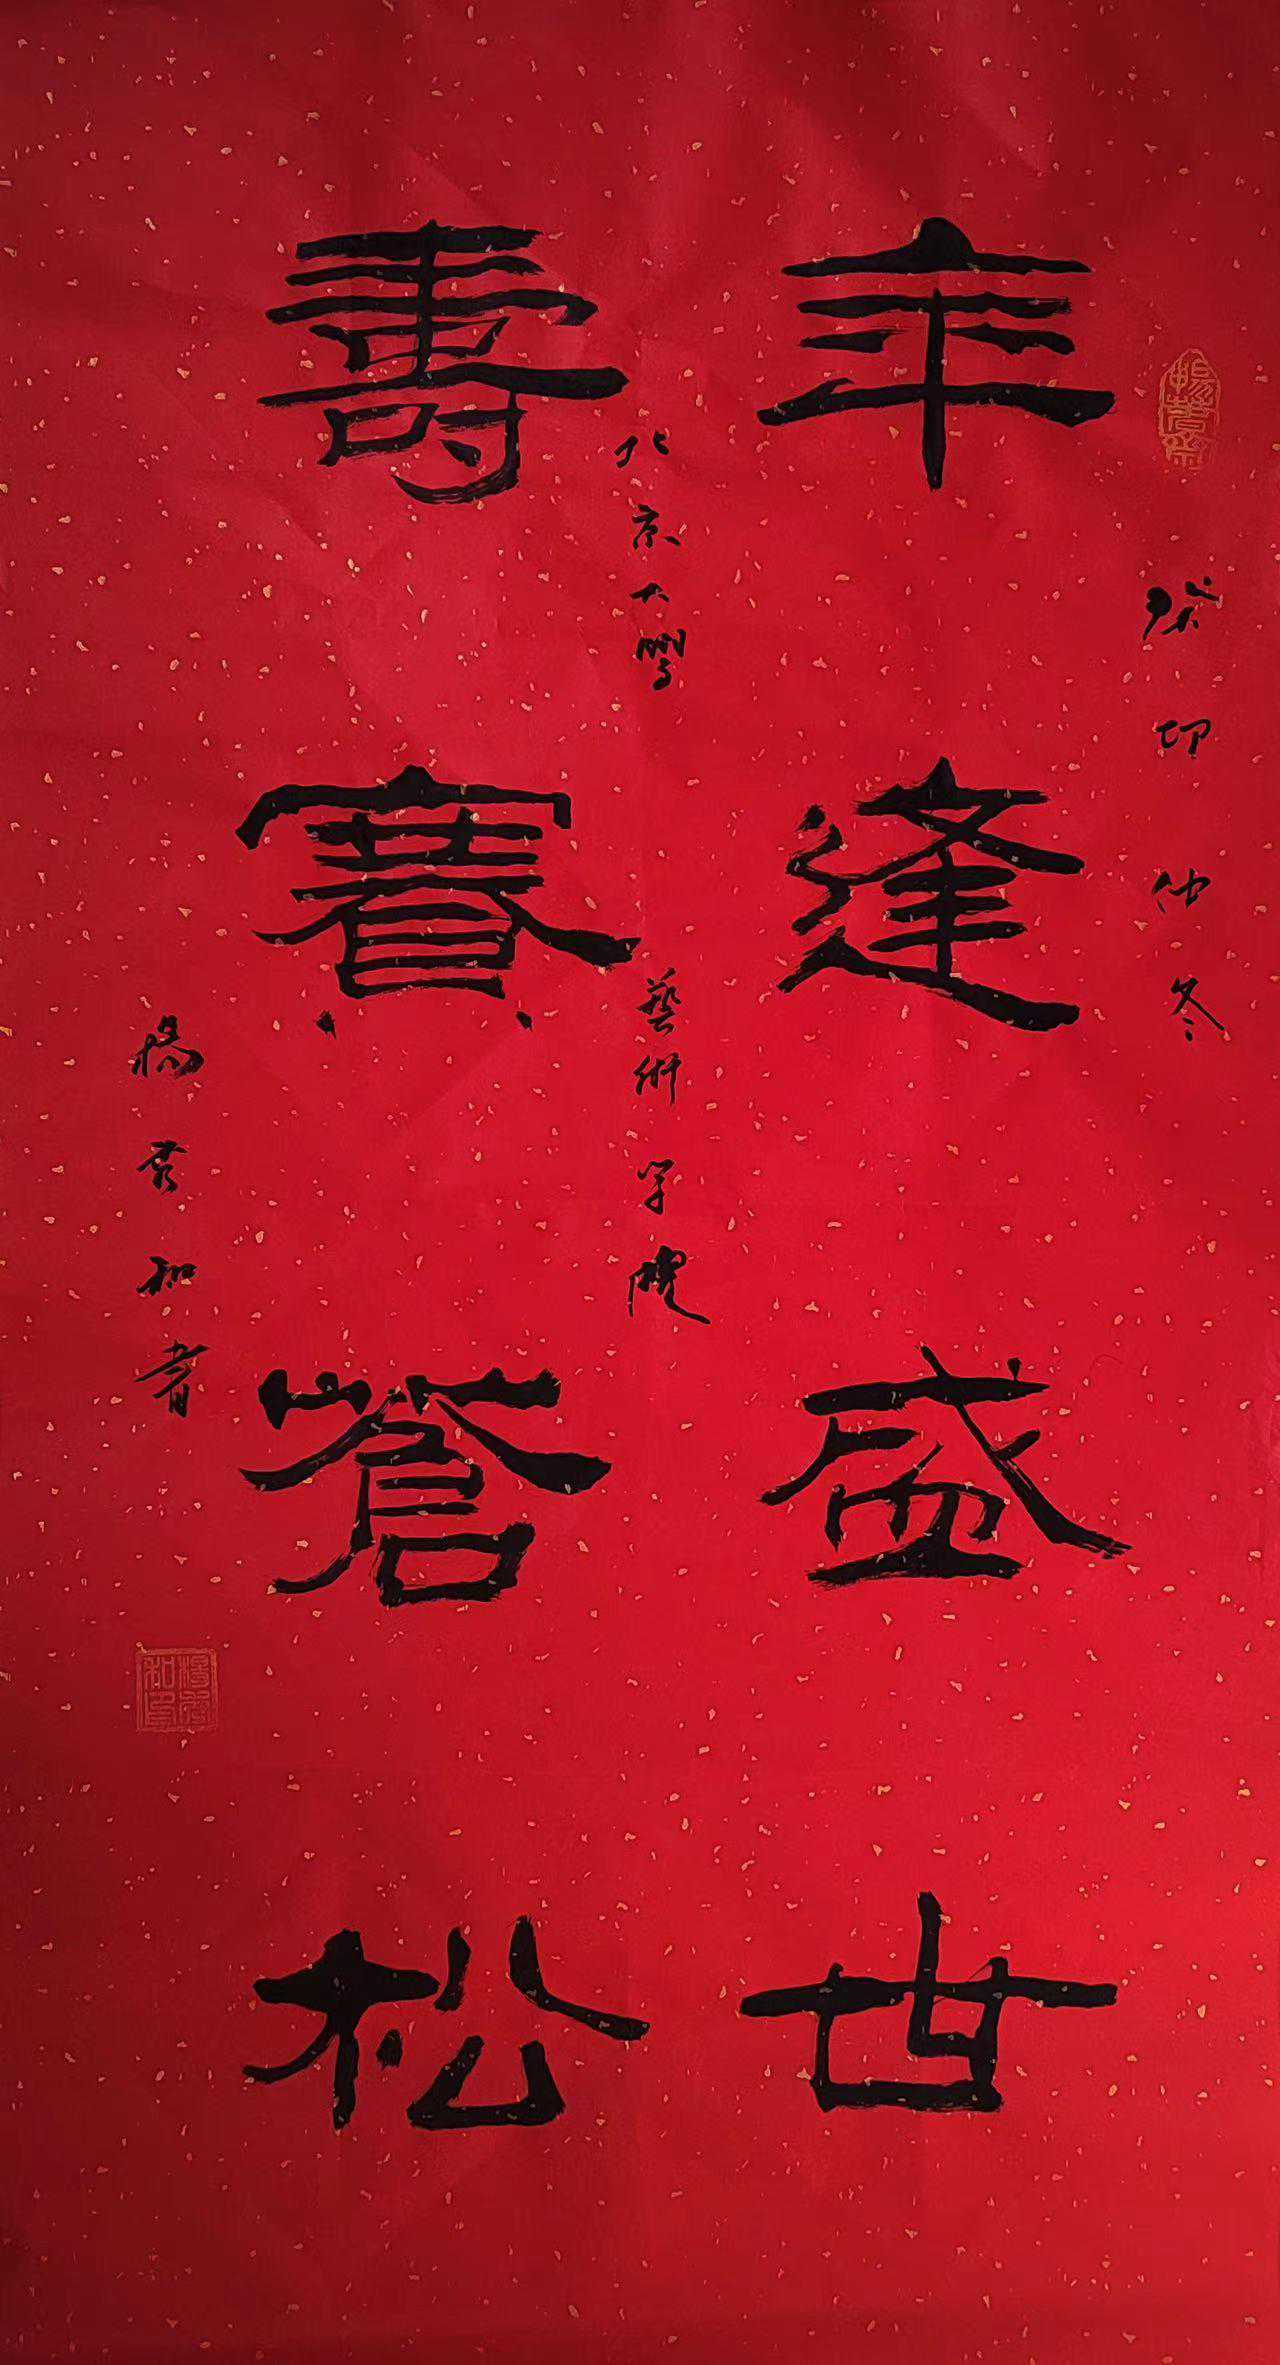 年逢盛世
壽賽蒼松
癸卯仲冬
北京大鹏
藝術学院
楊秀和書